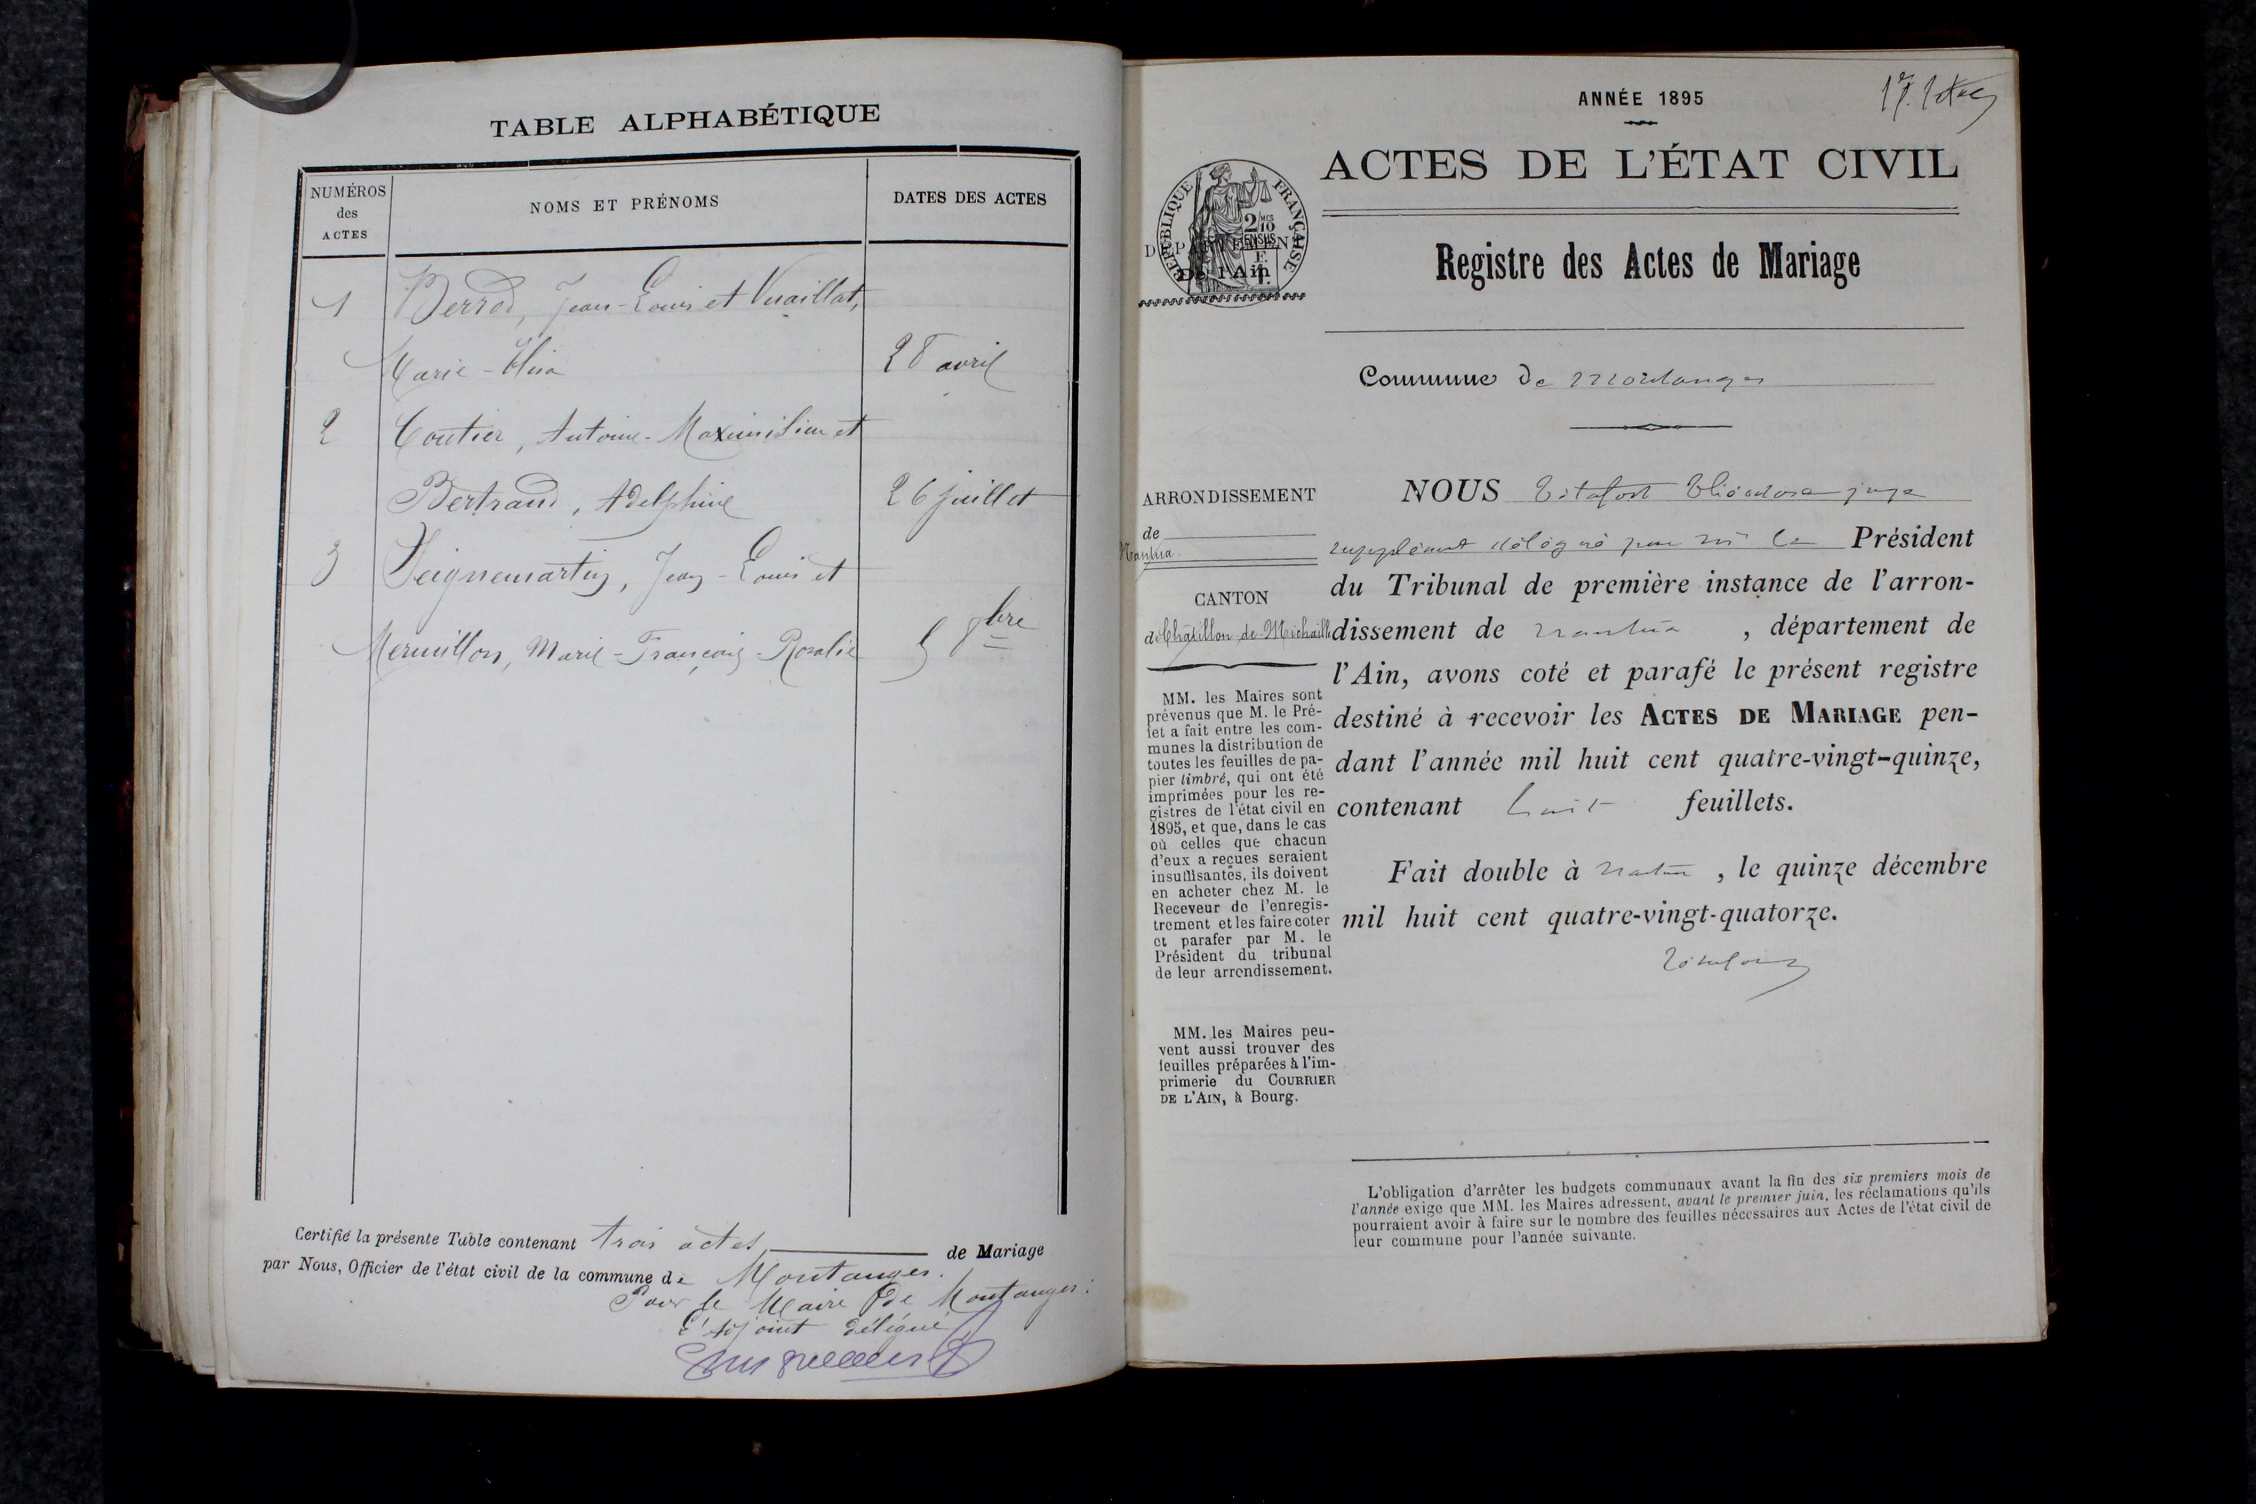 TABLE ALPHABÉTIQUE
NUMÉROS
des
ACTES
NOMS ET PRÉNOMS
DATES DES ACTES
1 Berrod, Jean-Louis et Vuaillat,
Marie-Elisa 28 avril
2 Coutier, Antoine-Maximilien et
Bertrand, Adelphine 26 juillet
3 Seignemartin, Jean-Louis et
Mermillon, Marie-François-Rosalie 5 8bre
Certifié la présente Table contenant trois actes de Mariage
par Nous, Officier de l'état civil de la commune de Montanges.
Pour le Maire de Montanges:
L'Adjoint délégué
ANNÉE 1895
ACTES DE L'ÉTAT CIVIL
RÉPUBLIQUE FRANÇAISE
2/10 MES
EN SUS
DÉPARTEMENT
De l'Ain
Registre des Actes de Mariage
Commune de Montanges
ARRONDISSEMENT
de
Nantua
CANTON
de Châtillon-de-Michaille
MM. les Maires sont
prévenus que M. le Pré-
fet a fait entre les com-
munes la distribution de
toutes les feuilles de pa-
pier timbré, qui ont été
imprimées pour les re-
gistres de l'état civil en
1895, et que, dans le cas
où celles que chacun
d'eux a reçues seraient
insuffisantes, ils doivent
en acheter chez M. le
Receveur de l'enregis-
trement et les faire coter
et parafer par M. le
Président du tribunal
de leur arrondissement.
MM. les Maires peu-
vent aussi trouver des
feuilles préparées à l'im-
primerie du COURRIER
DE L'AIN, à Bourg.
NOUS Théodore juge
suppléant délégué par Mr le Président
du Tribunal de première instance de l'arron-
dissement de Nantua , département de
l'Ain, avons coté et parafé le présent registre
destiné à recevoir les ACTES DE MARIAGE pen-
dant l'année mil huit cent quatre-vingt-quinze,
contenant huit feuillets.
Fait double à Nantua , le quinze décembre
mil huit cent quatre-vingt-quatorze.
L'obligation d'arrêter les budgets communaux avant la fin des six premiers mois de
l'année exige que MM. les Maires adressent, avant le premier juin, les réclamations qu'ils
pourraient avoir à faire sur le nombre des feuilles nécessaires aux Actes de l'état civil de
leur commune pour l'année suivante.